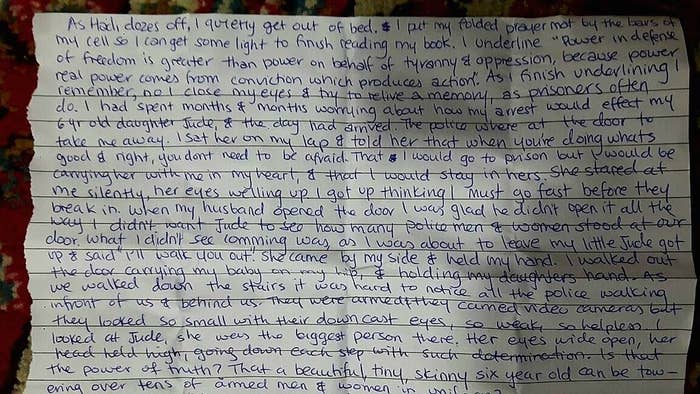 As Hadi dozes off, I quietly get out of bed. & I put my folded prayer mat by the bars of
my cell so I can get some light to finish reading my book. I underline "Power in defense
of freedom is greater than power on behalf of tyranny & oppression, because power
real power comes from conviction which produces action". As I finish underlining I
remember, no I close my eyes & try to relive a memory, as prisoners often
do. I had spent months & months worrying about how my arrest would effect my
6 yr old daughter Jude, & the day had arrived. The police where at the door to
take me away. I sat her on my lap & told her that when you're doing whats
good & right, you dont need to be afraid. That I would go to prison but I would be
carrying her with me in my heart, & that I would stay in hers. She stared at
me silently, her eyes welling up. I got up thinking I must go fast before they
break in. When my husband opened the door I was glad he didn't open it all the
way I didn't want Jude to see how many police men & women stood at our
door. What I didn't see comming was as I was about to leave my little Jude got
up & said "I'll walk you out". She came by my side & held my hand. I walked out
the door carrying my baby on my hip, & holding my daughters hand. As
we walked down the stairs it was hard to notice all the police walking
infront of us & behind us. They were armed, they carried video cameras but
they looked so small with their down cast eyes, so weak, so helpless. I
looked at Jude, she was the biggest person there. Her eyes wide open, her
head held high, going down each step with such determination. Is that
the power of truth? That a beautiful, tiny, skinny six year old can be tow-
ering over tens of armed men & women in